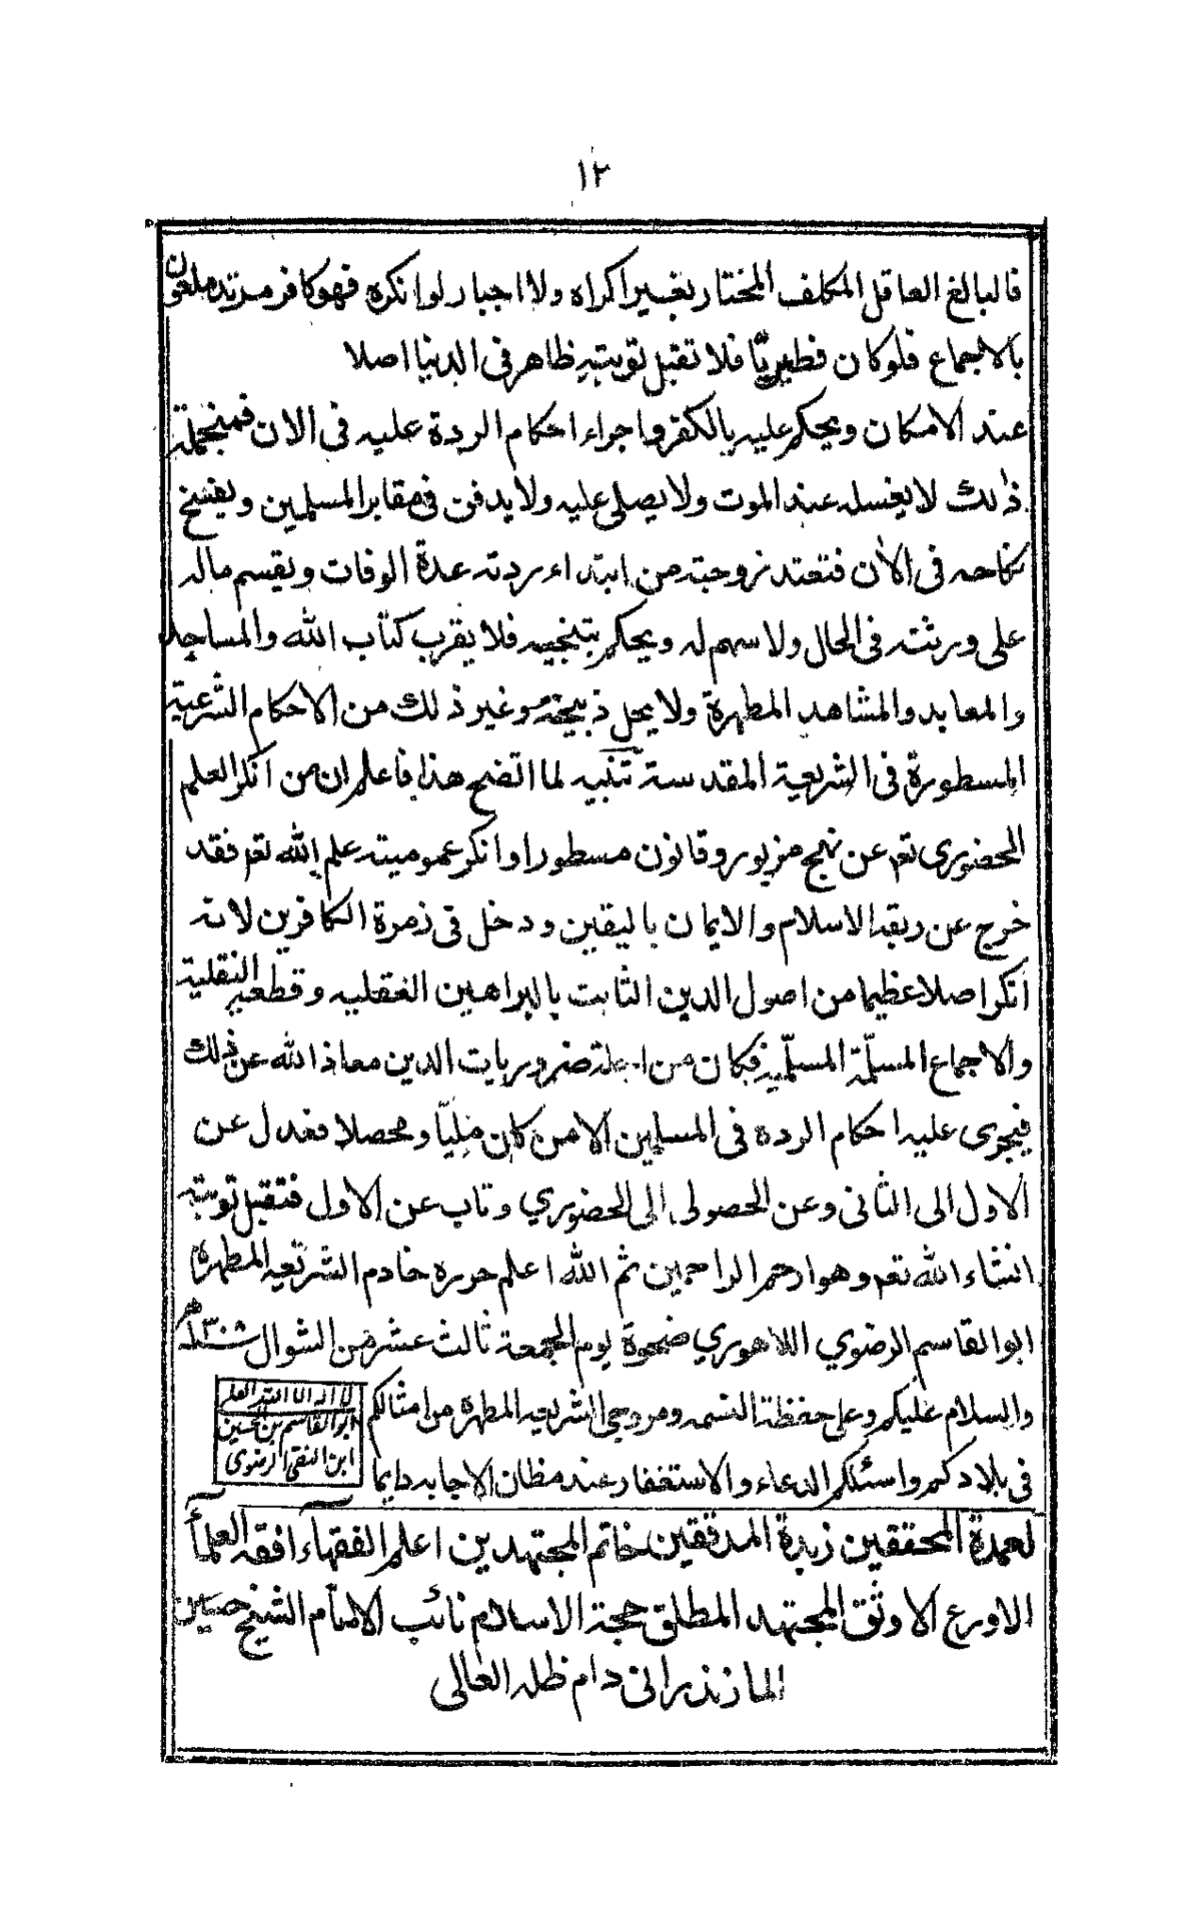 ١٢
فالبالغ العاقل المكلف المختار بغير اكراه ولا اجبار لوانكره فهو كافر مرتد ملعون
بالاجماع فلوكان فطريّا فلا تقبل توبته ظاهر فى الدنيا اصلا
عند الامكان ويحكم عليه بالكفر واجراء احكام الردة عليه فى الان فمنجملة
ذالك لا يغسله عند الموت ولا يصلى عليه ولا يدفن فى مقابر المسلمين ويفسخ
نكاحه فى الان فتعتد زوجته من ابتداء ردته عدة الوفات ويقسم ماله
على ورثته فى الحال ولا سهم له ويحكم بتنجيه فلا يقرب كتاب الله والمساجد
والمعابد والمشاهد المطهرة ولا يحل ذبيحته وغير ذلك من الاحكام الشرعية
المسطورة فى الشريعة المقدسة تنبيه لما اتضح هذا فاعلم ان من انكر العلم
الحضورى تعم عن نهج مزبور وقانون مسطور او انكر عموميته علم الله تعم فقد
خرج عن ربقه الاسلام والايمان باليقين ودخل فى زمرة الكافرين لانه
انكر اصلا عظيما من اصول الدين الثابت بالبراهين العقليه وقطعيه النقلية
والاجماع المسلّمة المسلّميه فكان من اجلة ضروريات الدين معاذ الله عن ذلك
فيجرى عليه احكام الردة فى المسلمين الا من كان مليّا ومحصلا فعدل عن
الاول الى الثانى وعن الحصولى الى الحضوري وتاب عن الاول فتقبل توبته
انشاء الله تعم وهو ارحم الراحمين ثم الله اعلم حرره خادم الشريعه المطهرة
ابوالقاسم الرضوي اللاهوري ضحوة يوم الجمعة ثالث عشر من الشوال ١٣٠٨ه
والسلام عليكم وعلى حفظة النسمه ومروجى الشريعه المطهره من امثالكم
فى بلادكم واسئلكم الدعاء والاستغفار عند مظان الاجابه دايما
لا اله الا الله العلى
ابوالقاسم بن الحسين
ابن النقى الرضوى
لعمدة المحققين زبدة المدققين خاتم المجتهدين اعلم الفقهاء افقه العلمآ
الاورع الاوثق المجتهد المطلق حجة الاسلام نائب الامام الشيخ حسين
المازندرانى دام ظله العالى